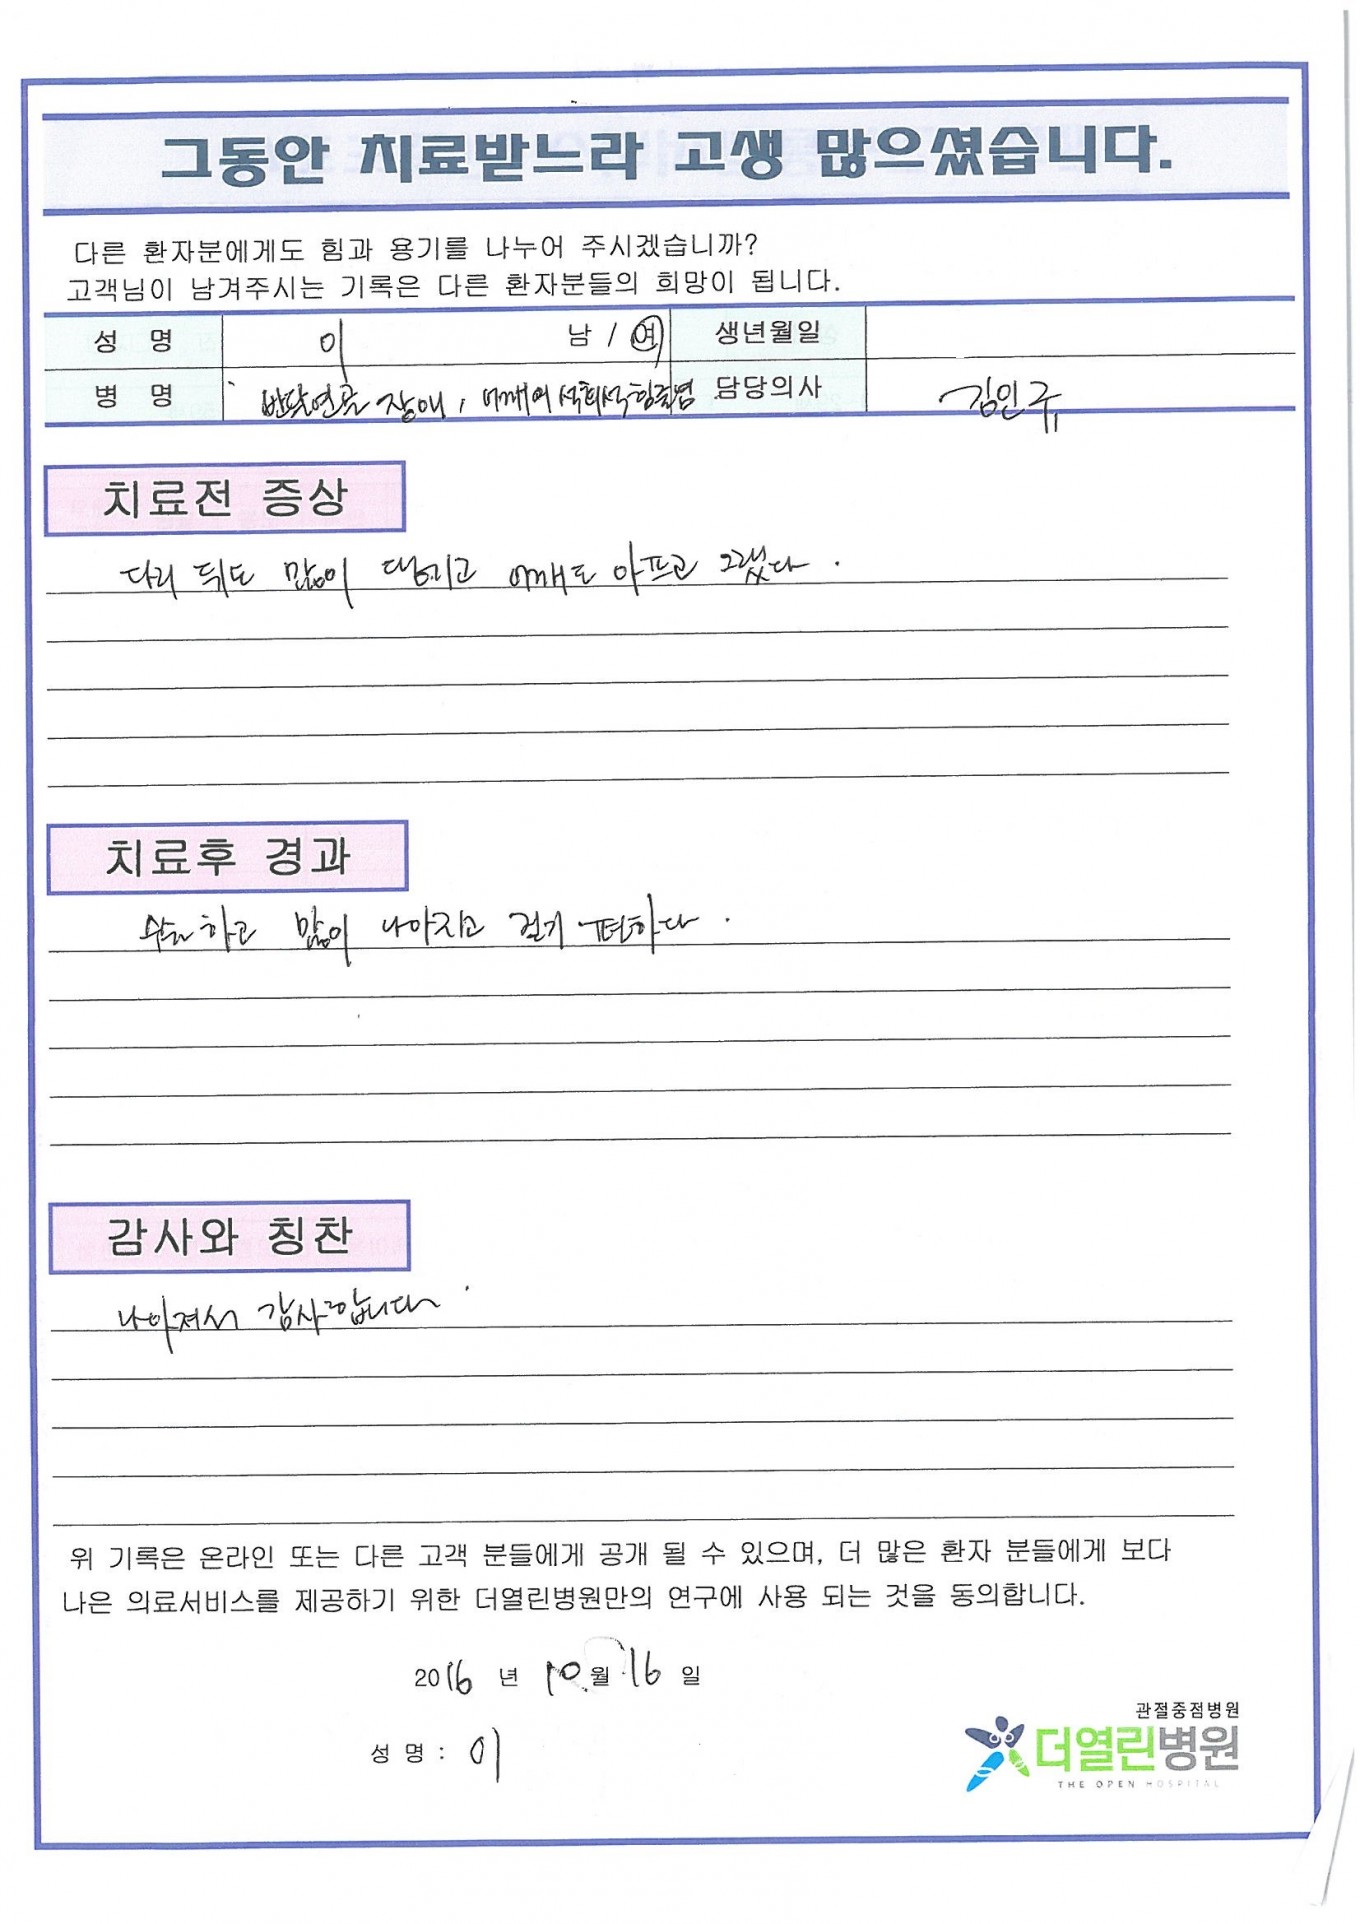 그동안 치료받느라 고생 많으셨습니다.
다른 환자분에게도 힘과 용기를 나누어 주시겠습니까?
고객님이 남겨주시는 기록은 다른 환자분들의 희망이 됩니다.
성 명 이 남 / 여 생년월일
병 명 반달연골 장애, 어깨의 석회석힘줄염 담당의사 김인규
치료전 증상
다리 뒤도 많이 댕기고 어깨도 아프고 그랬다.
치료후 경과
수술하고 많이 나아지고 걷기 편하다.
감사와 칭찬
나아져서 감사합니다.
위 기록은 온라인 또는 다른 고객 분들에게 공개 될 수 있으며, 더 많은 환자 분들에게 보다
나은 의료서비스를 제공하기 위한 더열린병원만의 연구에 사용 되는 것을 동의합니다.
2016 년 10 월 16 일
성 명 : 이
관절중점병원
더열린병원
THE OPEN HOSPITAL